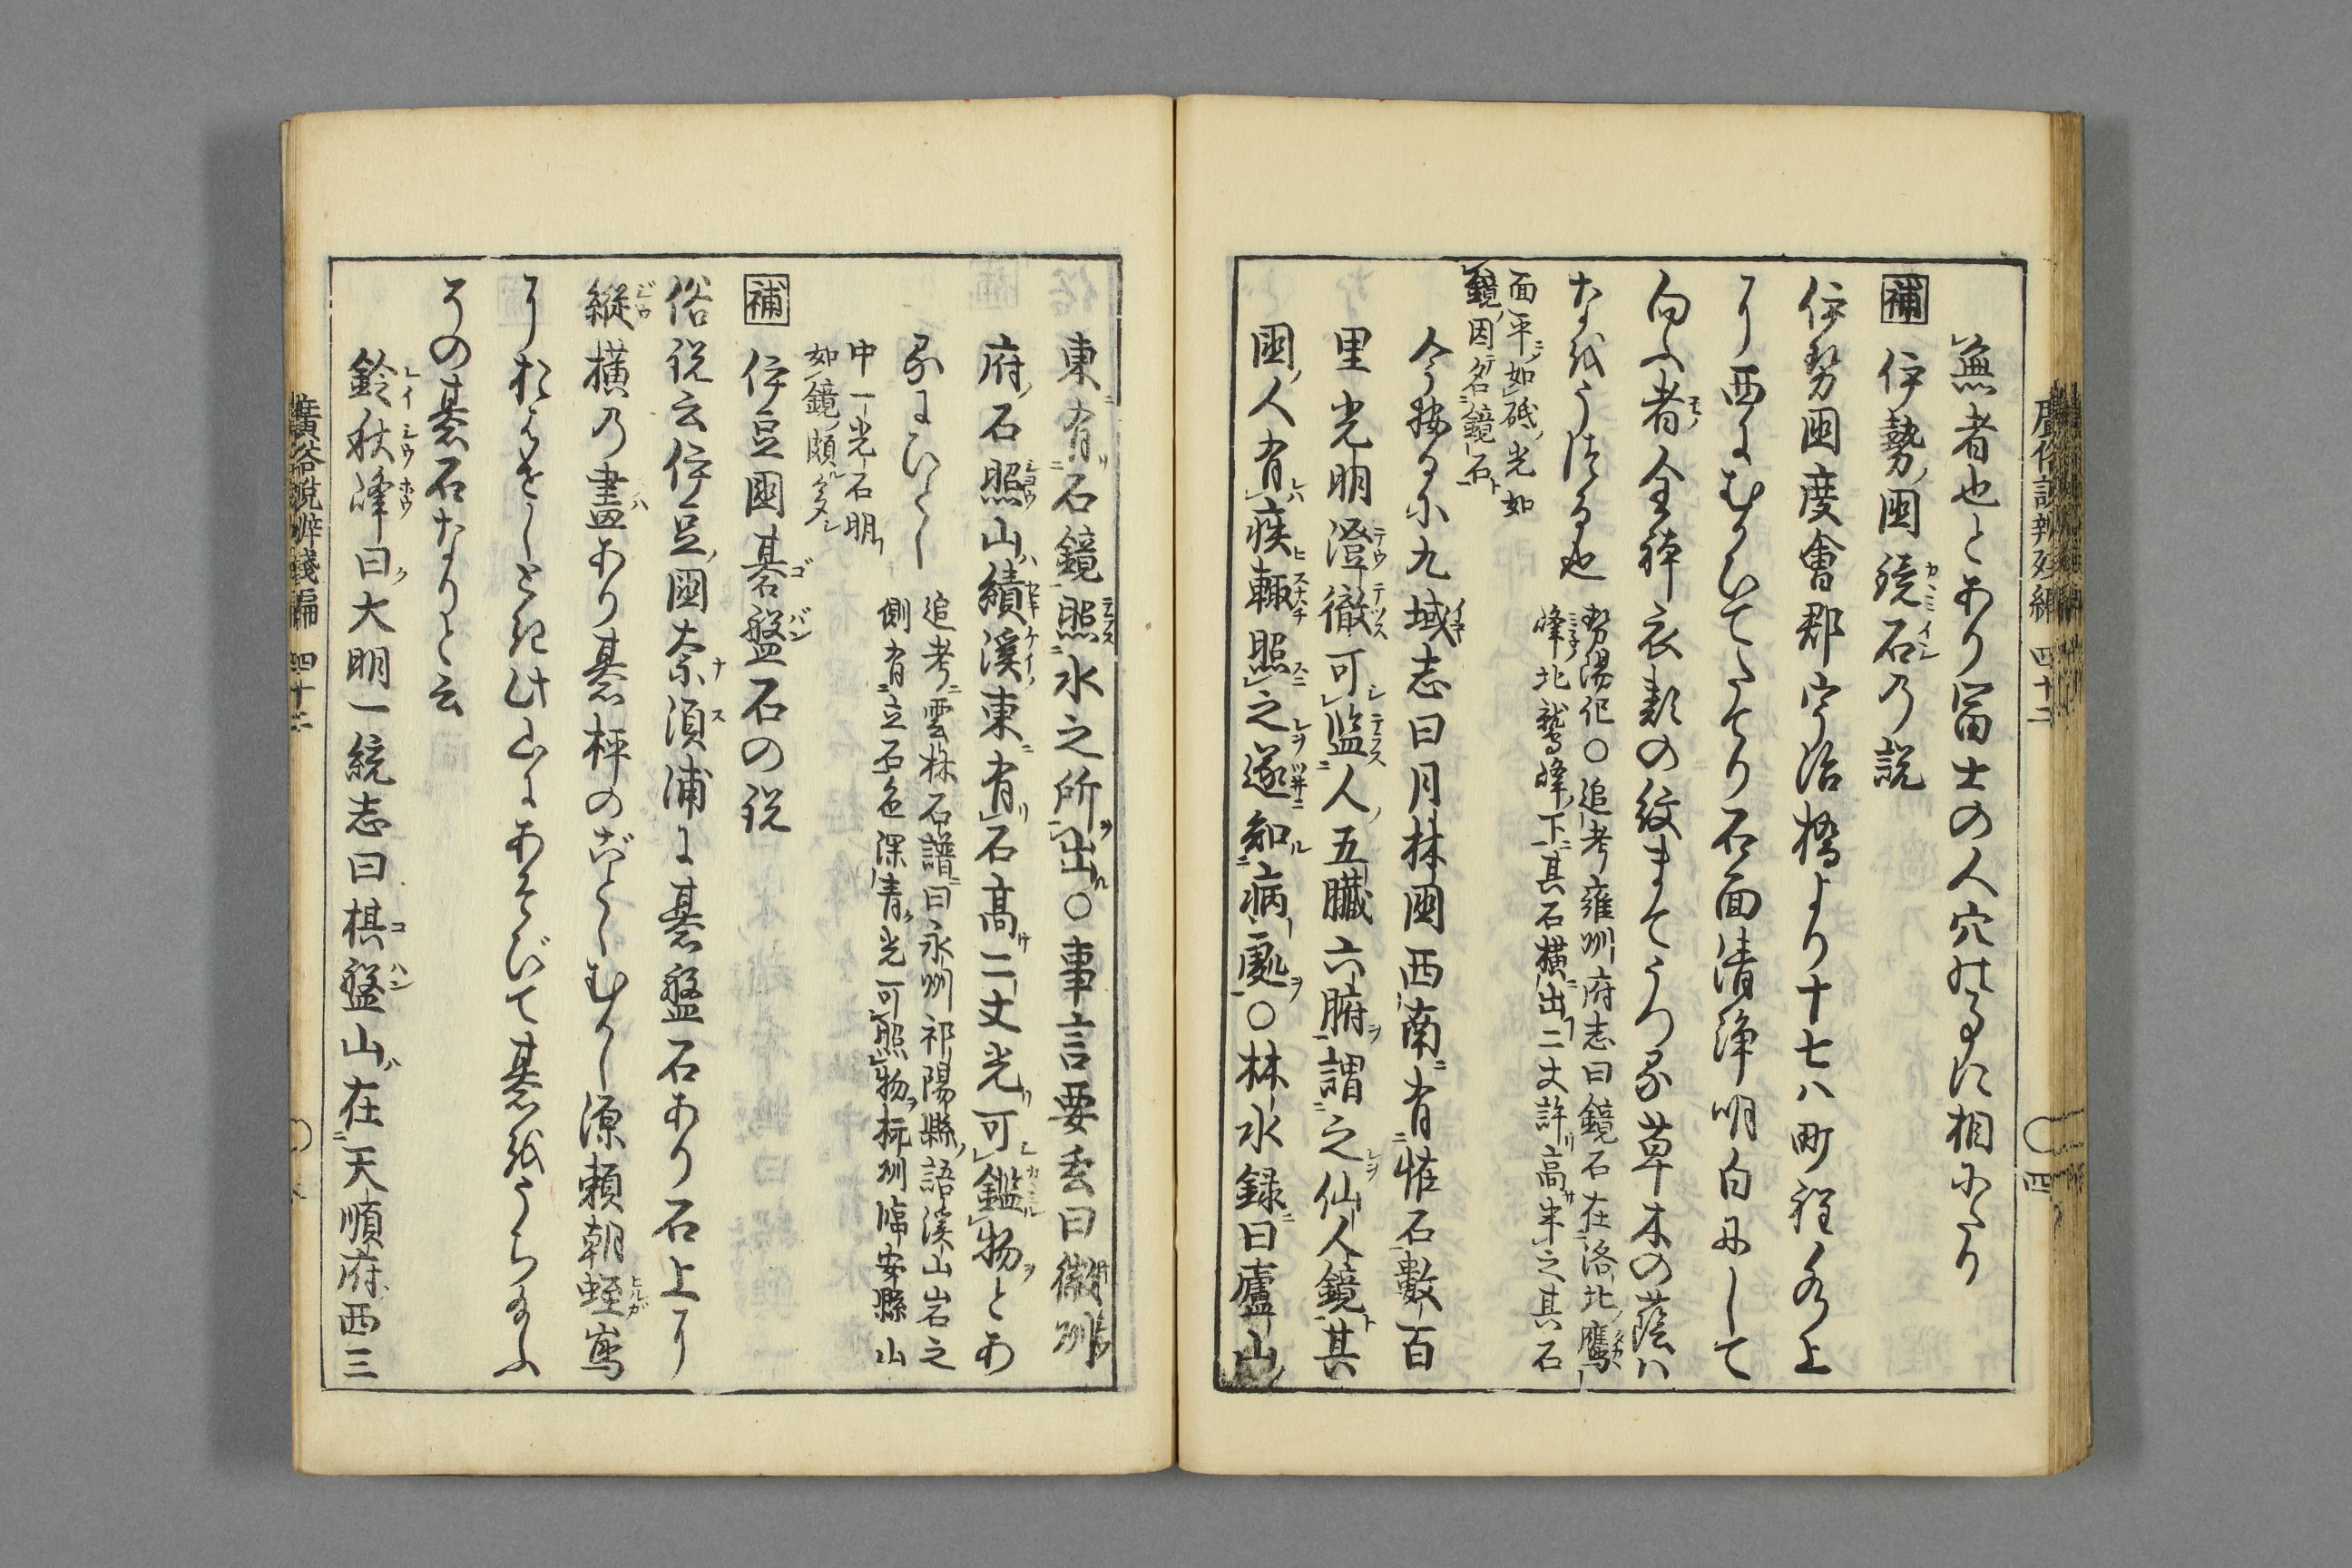 無者也とあり冨士の人穴のことに相似たり
補 伊勢ノ國鏡石乃説
伊勢國度會郡宇治橋より十七八町程の上
に西にむかひてたてり石面清浄明白にして
向ふ者全躰衣類の紋まてうつる草木の蔭ハ
なをうつる也
勢陽記○追考雍州府志曰鏡石在洛北鷹
峰北鷲峰下其石横出二丈許高半之其石
面平如砥光如
鏡因名鏡石
今按るに九域志曰月林國西南有怪石數百
里光明澄徹可監人五臓六腑謂之仙人鏡其
國人有疾輙照之遂知病處○林水録曰廬山
東有石鏡照水之所出○事言要玄曰徽州
府石照山績溪東有石高二丈光可鑑物とあ
るにひとし
追考雲林石譜曰永州祁陽縣語溪山岩之
側有立石色深青光可照物杭州臨安縣山
中一光石明
如鏡頗
補 伊豆國碁盤石の説
俗説云伊豆國奈須浦に碁盤石あり石上に
縦横乃畫あり碁枰のごとしむかし源頼朝蛭嶌
におはせしとき此山にあそびて碁をうち給ふ
その碁石なりと云
鈴秋峰曰大明一統志曰棋盤山在天順府西三
廣俗説辨殘編 四十二
四